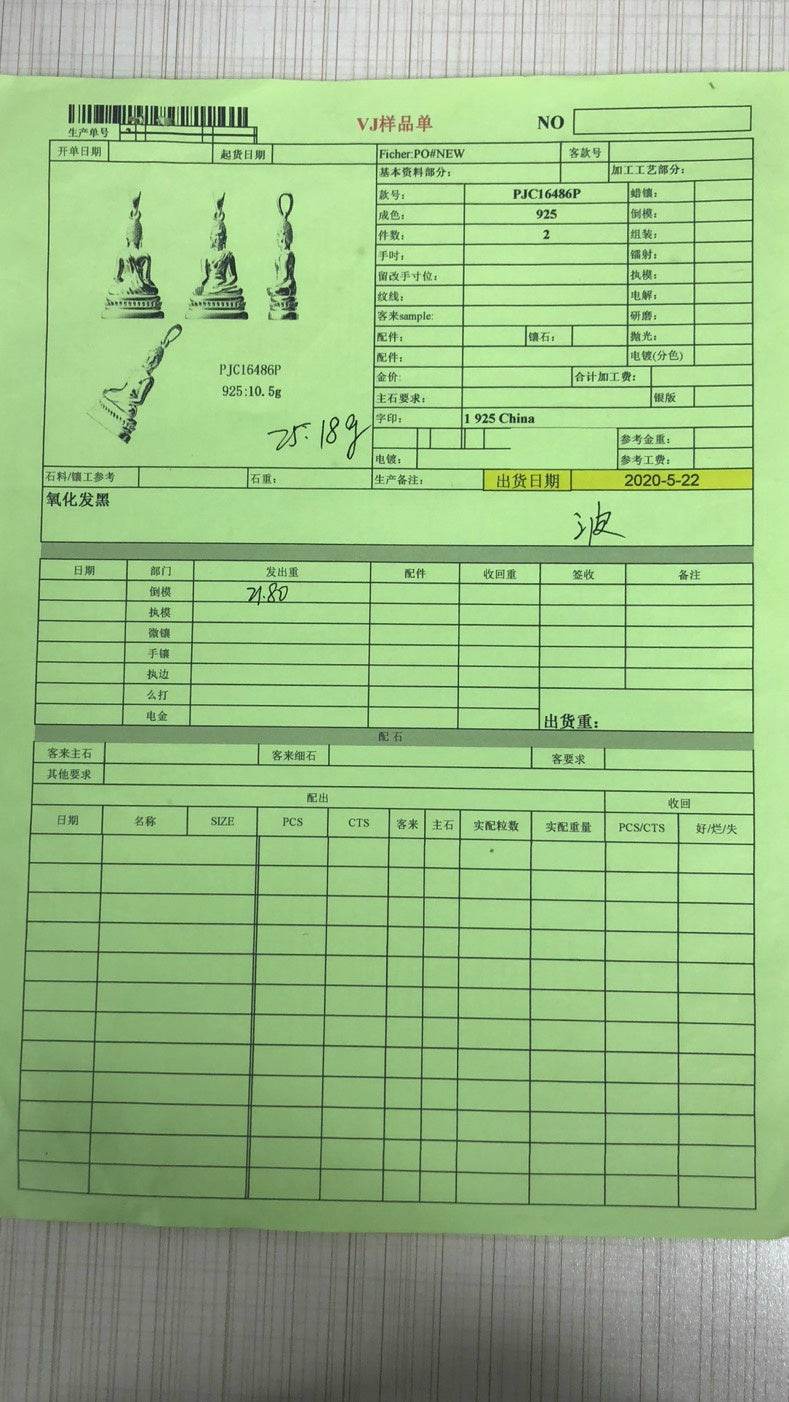 VJ样品单
NO
生产单号
开单日期 起货日期 Ficher:PO#NEW 客款号
基本资料部分： 加工工艺部分：
款号： PJC16486P 蜡镶：
成色： 925 倒模：
件数： 2 组装：
手吋： 镭射：
留改手寸位： 执模：
纹线： 电解：
客来sample: 研磨：
配件： 镶石： 抛光：
配件： 电镀(分色)
金价: 合计加工费：
主石要求： 银版
字印： 1 925 China
参考金重：
电镀： 参考工费：
PJC16486P
925:10.5g
25.18g
石料/镶工参考 石重： 生产备注： 出货日期 2020-5-22
氧化发黑
波
日期 部门 发出重 配件 收回重 签收 备注
倒模 21.80
执模
微镶
手镶
执边
么打
电金
出货重：
配 石
客来主石 客来细石 客要求
其他要求
配出 收回
日期 名称 SIZE PCS CTS 客来 主石 实配粒数 实配重量 PCS/CTS 好/烂/失